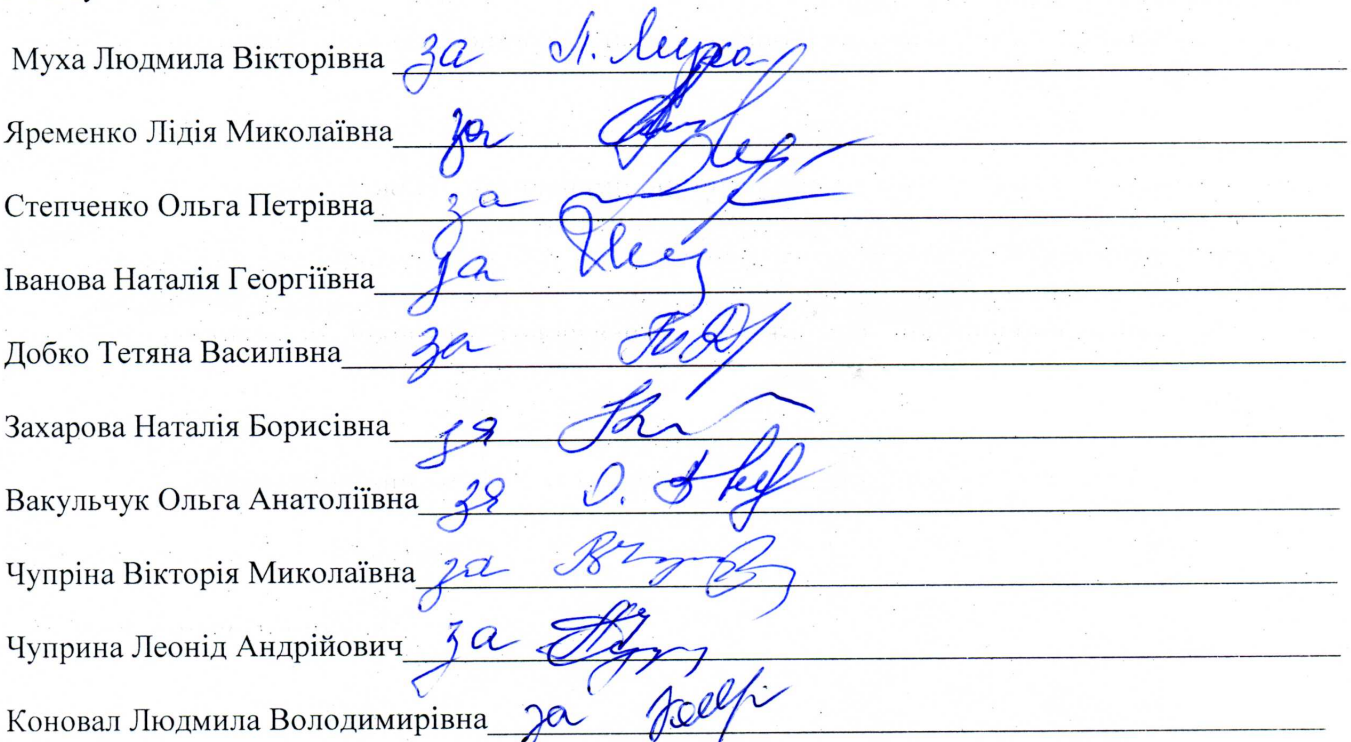 Муха Людмила Вікторівна за Л. Муха
Яременко Лідія Миколаївна за
Степченко Ольга Петрівна за
Іванова Наталія Георгіївна за
Добко Тетяна Василівна за
Захарова Наталія Борисівна за
Вакульчук Ольга Анатоліївна за О.
Чупріна Вікторія Миколаївна за
Чуприна Леонід Андрійович за
Коновал Людмила Володимирівна за